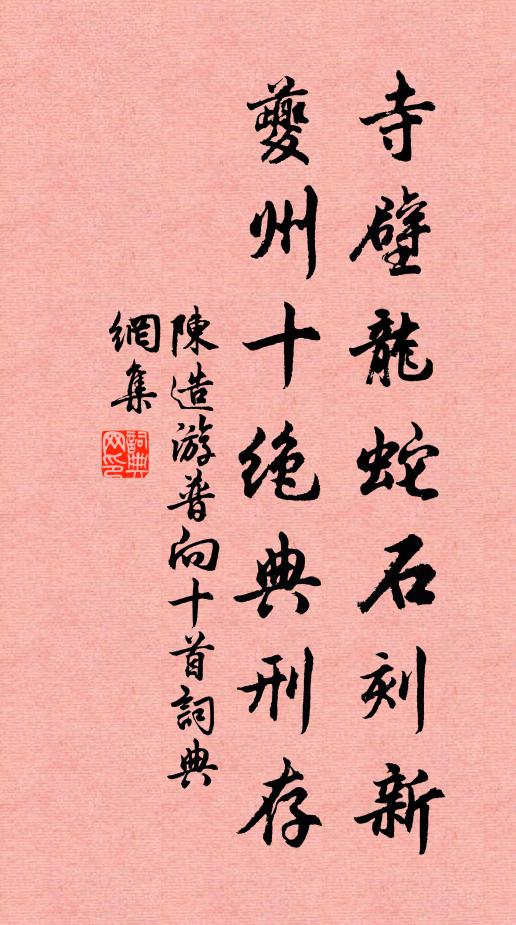 寺壁龍蛇石刻新
夔州十絶典刑存
陳造游普向十首詞典
網集
詞典網印